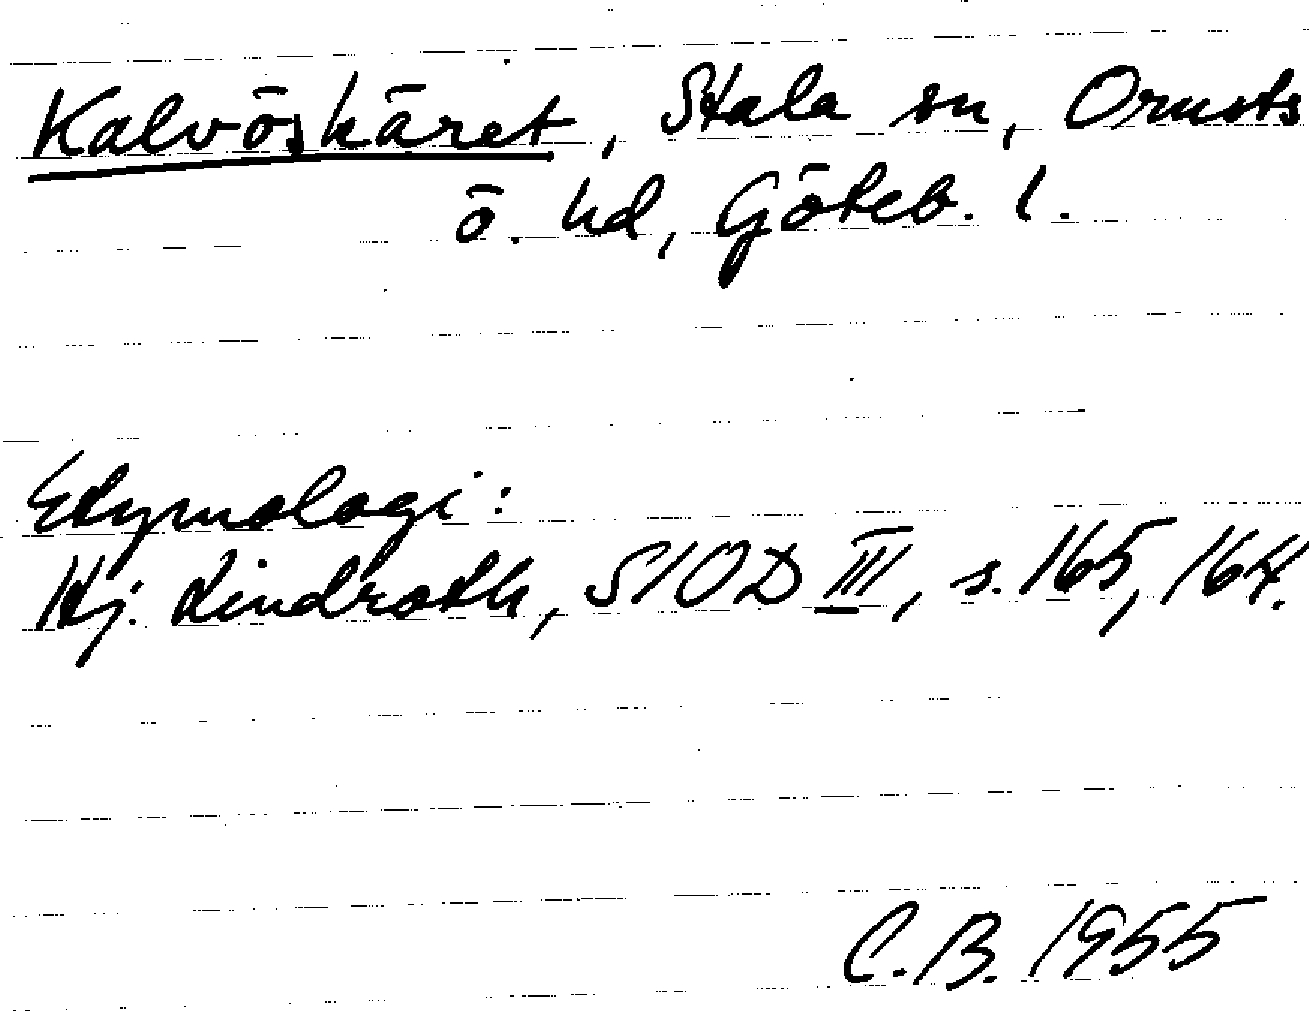 Kalvöskäret, Stala sn, Orusts
ö. hd, Göteb. l.
Etymologi:
Hj. Lindroth, SIOD III, s. 165, 164.
C.B. 1955